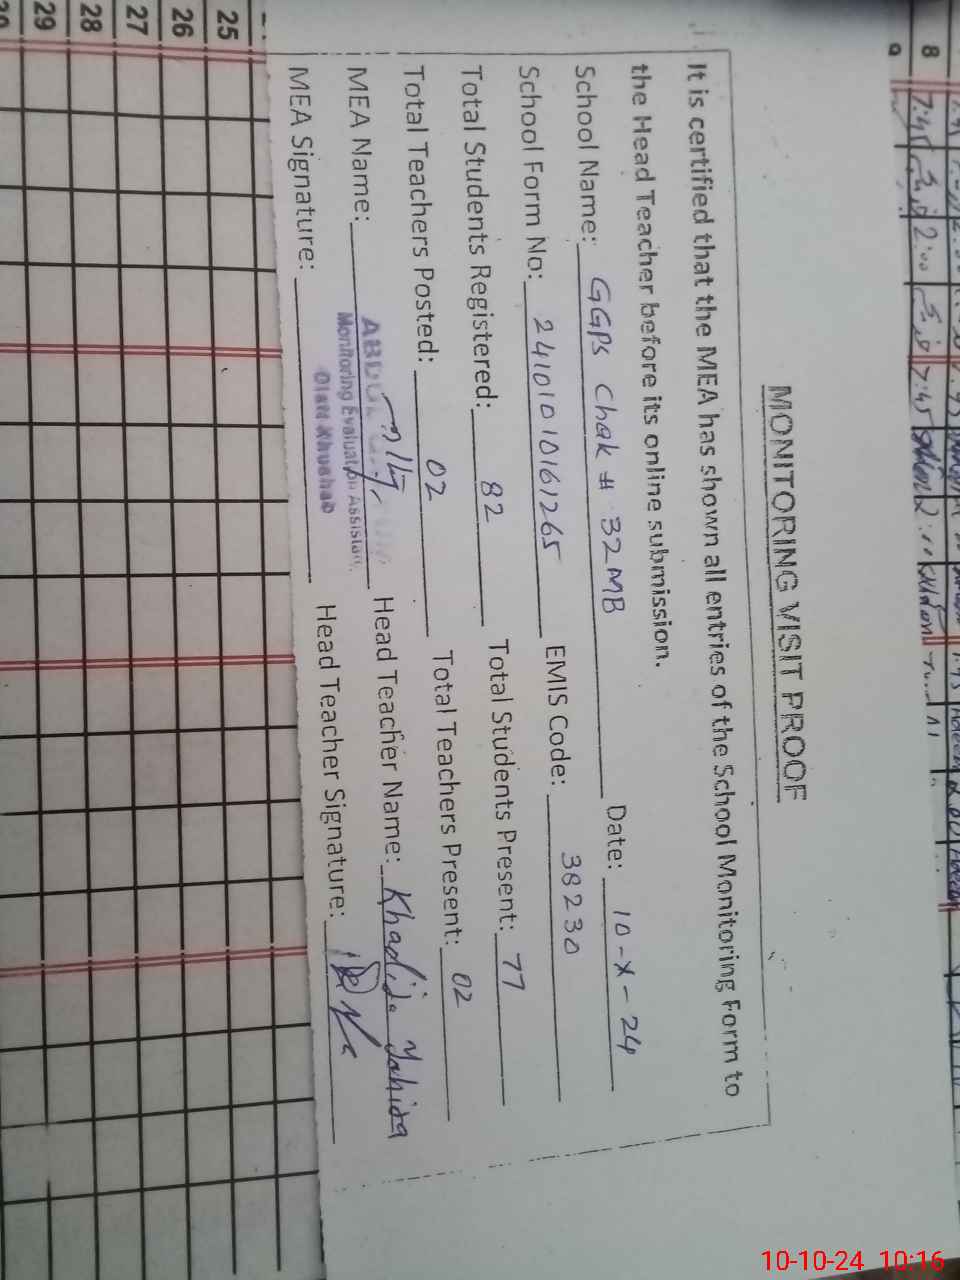 MONITORING VISIT PROOF
It is certified that the MEA has shown all entries of the School Monitoring Form to
the Head Teacher before its online submission.
School Name: GGPS Chak # 32MB Date: 10-X-24
School Form No: 2410101061265 EMIS Code: 38230
Total Students Registered: 82 Total Students Present: 77
Total Teachers Posted: 02 Total Teachers Present: 02
MEA Name: Head Teacher Name: Khadija
Monitoring Evaluation Assistant
MEA Signature: Head Teacher Signature:
Distt Khushab
8
7:45 2:00 7:45
9
25
26
27
28
29
10-10-24 10:16